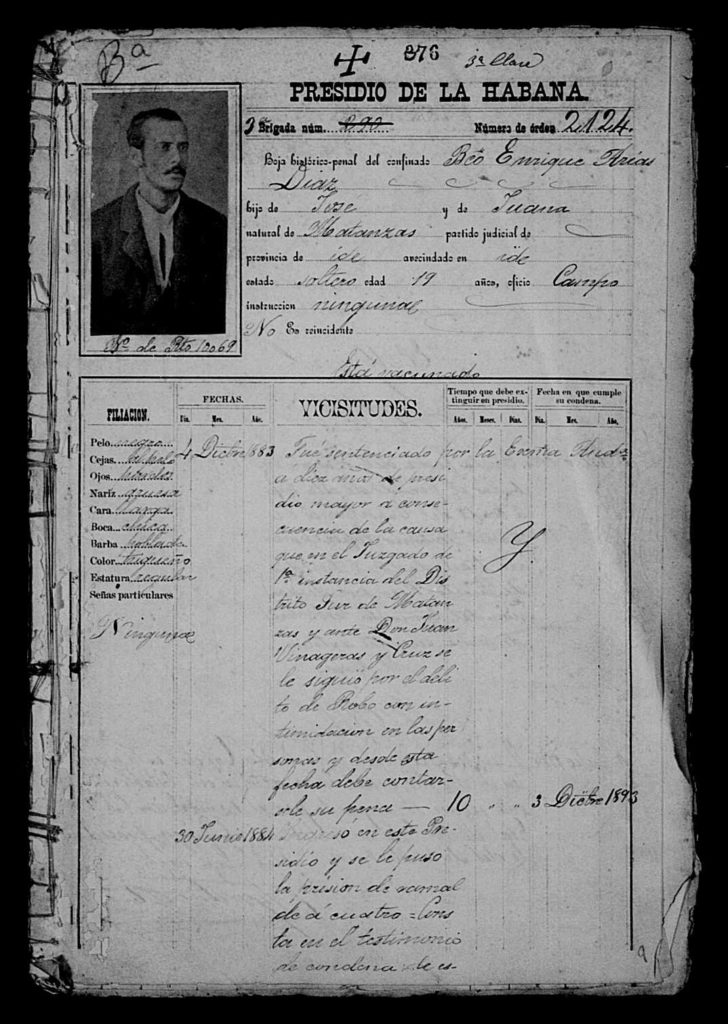 Bª
376
3ª Clase
PRESIDIO DE LA HABANA.
Brigada núm.
Número de órden 2,124.
Hoja histórico-penal del confinado Bco Enrique Arias
Diaz
hijo de Jose y de Juana
natural de Matanzas partido judicial de
provincia de ide avecindado en ide
estado soltero edad 19 años, oficio Campo
instruccion ninguna
No Es reincidente
Nº de Rto 10069
Está vacunado
FILIACION.
FECHAS.
Dia. Mes. Año.
VICISITUDES.
Tiempo que debe extinguir en presidio.
Años. Meses. Dias.
Fecha en que cumple su condena.
Dia. Mes. Año.
Pelo negro
Cejas al pelo
Ojos pardos
Naríz gruesa
Cara larga
Boca chica
Barba poblada
Color trigueño
Estatura regular
Señas particulares
Ninguna
4 Dictre 1883 Fué sentenciado por la Excma Audª
a diez años de presi-
dio mayor a conse-
cuencia de la causa
que en el Juzgado de
1ª instancia del Dis
trito Sur de Matan
zas y ante Don Juan
Vinageras y Cruz se
le siguió por el deli
to de Robo con in-
timidacion en las per
sonas y desde esta
fecha debe contar-
sele su pena — 10 " " 3 Dictre 1893
30 Junio 1884 Ingresó en este Pre-
sidio y se le puso
la prision de ramal
de á cuatro = Cons
ta en el testimonio
de condena de es-